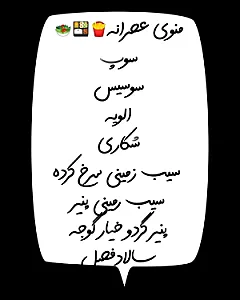 منوی عصرانه🍟🍱🥗
سوپ
سوسیس
الویه
شکاری
سیب زمینی سرخ کرده
سیب زمینی پنیر
پنیر گردو خیار گوجه
سالاد فصل